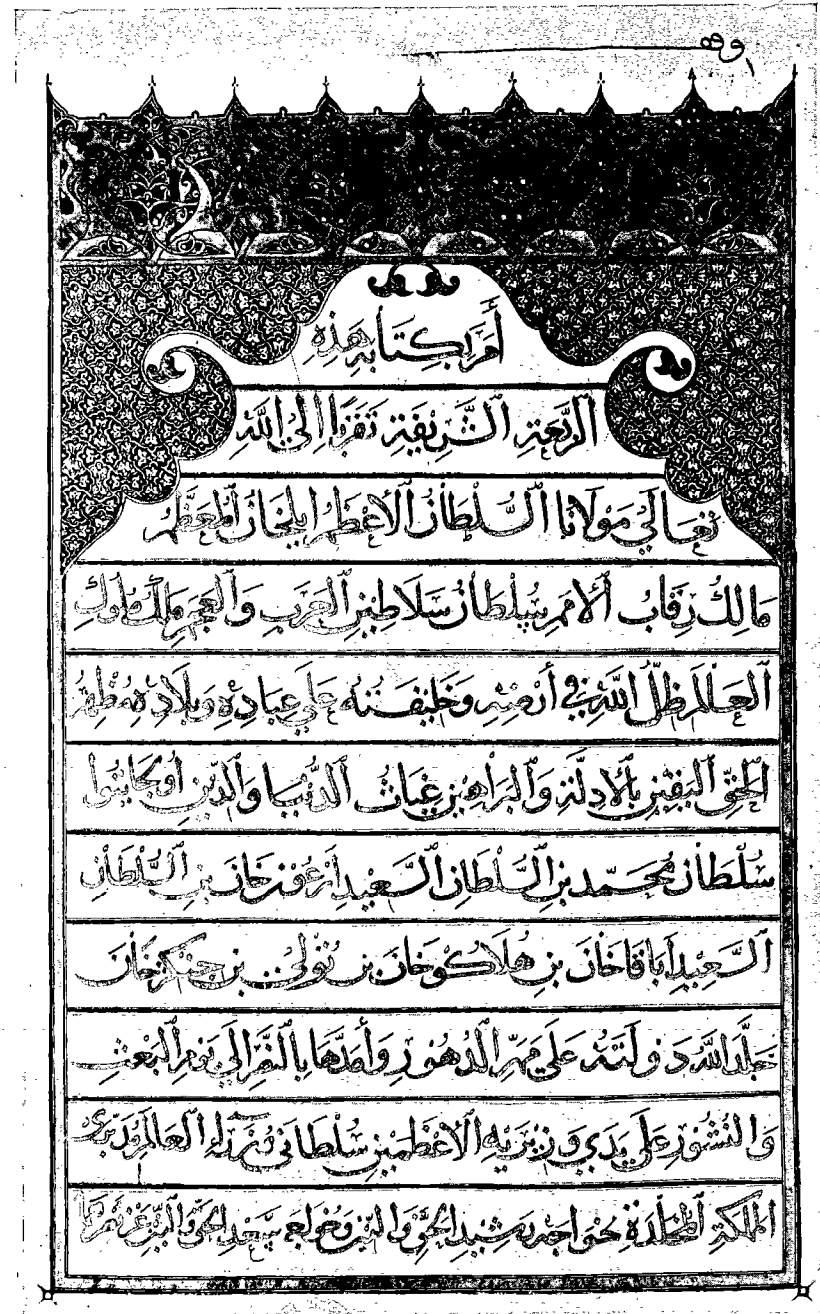 أَمَرَ بِكِتَابَةِ هَذِهِ
الرَّبْعَةِ الشَّرِيفَةِ تَقَرُّبًا إِلَى اللَّهِ
تَعَالَى مَوْلَانَا السُّلْطَانُ الْأَعْظَمُ ايلخان الْمُعَظَّمُ
مَالِكُ رِقَابِ الْأُمَمِ سُلْطَانُ سَلَاطِينِ الْعَرَبِ وَالْعَجَمِ مَلِكُ مُلُوكِ
الْعَالَمِ ظِلُّ اللَّهِ فِي أَرْضِهِ وَخَلِيفَتُهُ عَلَى عِبَادِهِ وَبِلَادِهِ مُظْهِرُ
الْحَقِّ الْيَقِينِ بِالْأَدِلَّةِ وَالْبَرَاهِينِ غِيَاثُ الدُّنْيَا وَالدِّينِ أُولجَايتُوا
سُلْطَان مُحَمَّد بنِ السُّلْطَانِ السَّعِيدِ أَرْغُون خَان بنِ السُّلْطَانِ
السَّعِيدِ أَبَاقَا خَان بنِ هُلَاكُو خَان بن تُولِي بن جنكزخَان
خَلَّدَ اللَّهُ دَوْلَتَهُ عَلَى مَمَرِّ الدُّهُورِ وَأَمَدَّهَا بِالنَّصْرِ إِلَى يَوْمِ الْبَعْثِ
وَالنُّشُورِ عَلَى يَدَي وَزِيرَيهِ الْأَعْظَمَيْنِ سُلْطَانَي وُزَرَاءِ الْعَالَمِ مُدَبِّرَي
الْمَمْلَكَةِ الْمُخَلَّدَةِ خواجه رَشِيدِ الْحَقِّ وَالدِّينِ وَخواجه سَعْدِ الْحَقِّ وَالدِّينِ